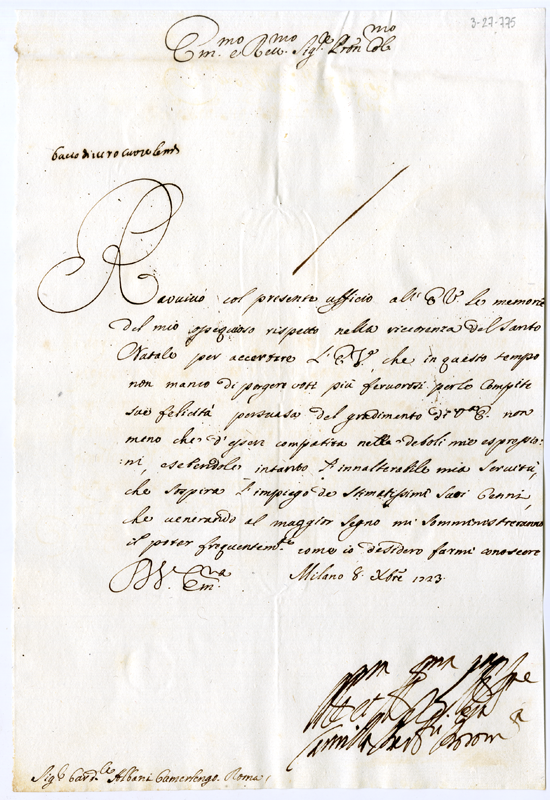 3-27-775
Em.mo e Rev.mo Sig.re Pron Col.mo
Ravvivo col presente ufficio all' E V le memorie
del mio ossequioso rispetto nella ricorenza del Santo
Natale per accertare l' che in questo tempo
non manco di porgere voti più fervorosi per le Compite
sue felicità persuasa del gradimento di non
meno che d'esser compatita nelle deboli mie espressio:
ni, esebendole intanto l'innalterabile mia servitù,
che sospira l'impiego de stimatissimi suoi Cenni,
che venerando al maggior segno mi somministreranno
il poter frequentem.te come io desidero farmi conoscere
Di V. Em.za Milano 8. Xbre 1723
Camilla Barb.ni Borom.a
Sig.r Card.le Albani Camerlengo. Roma